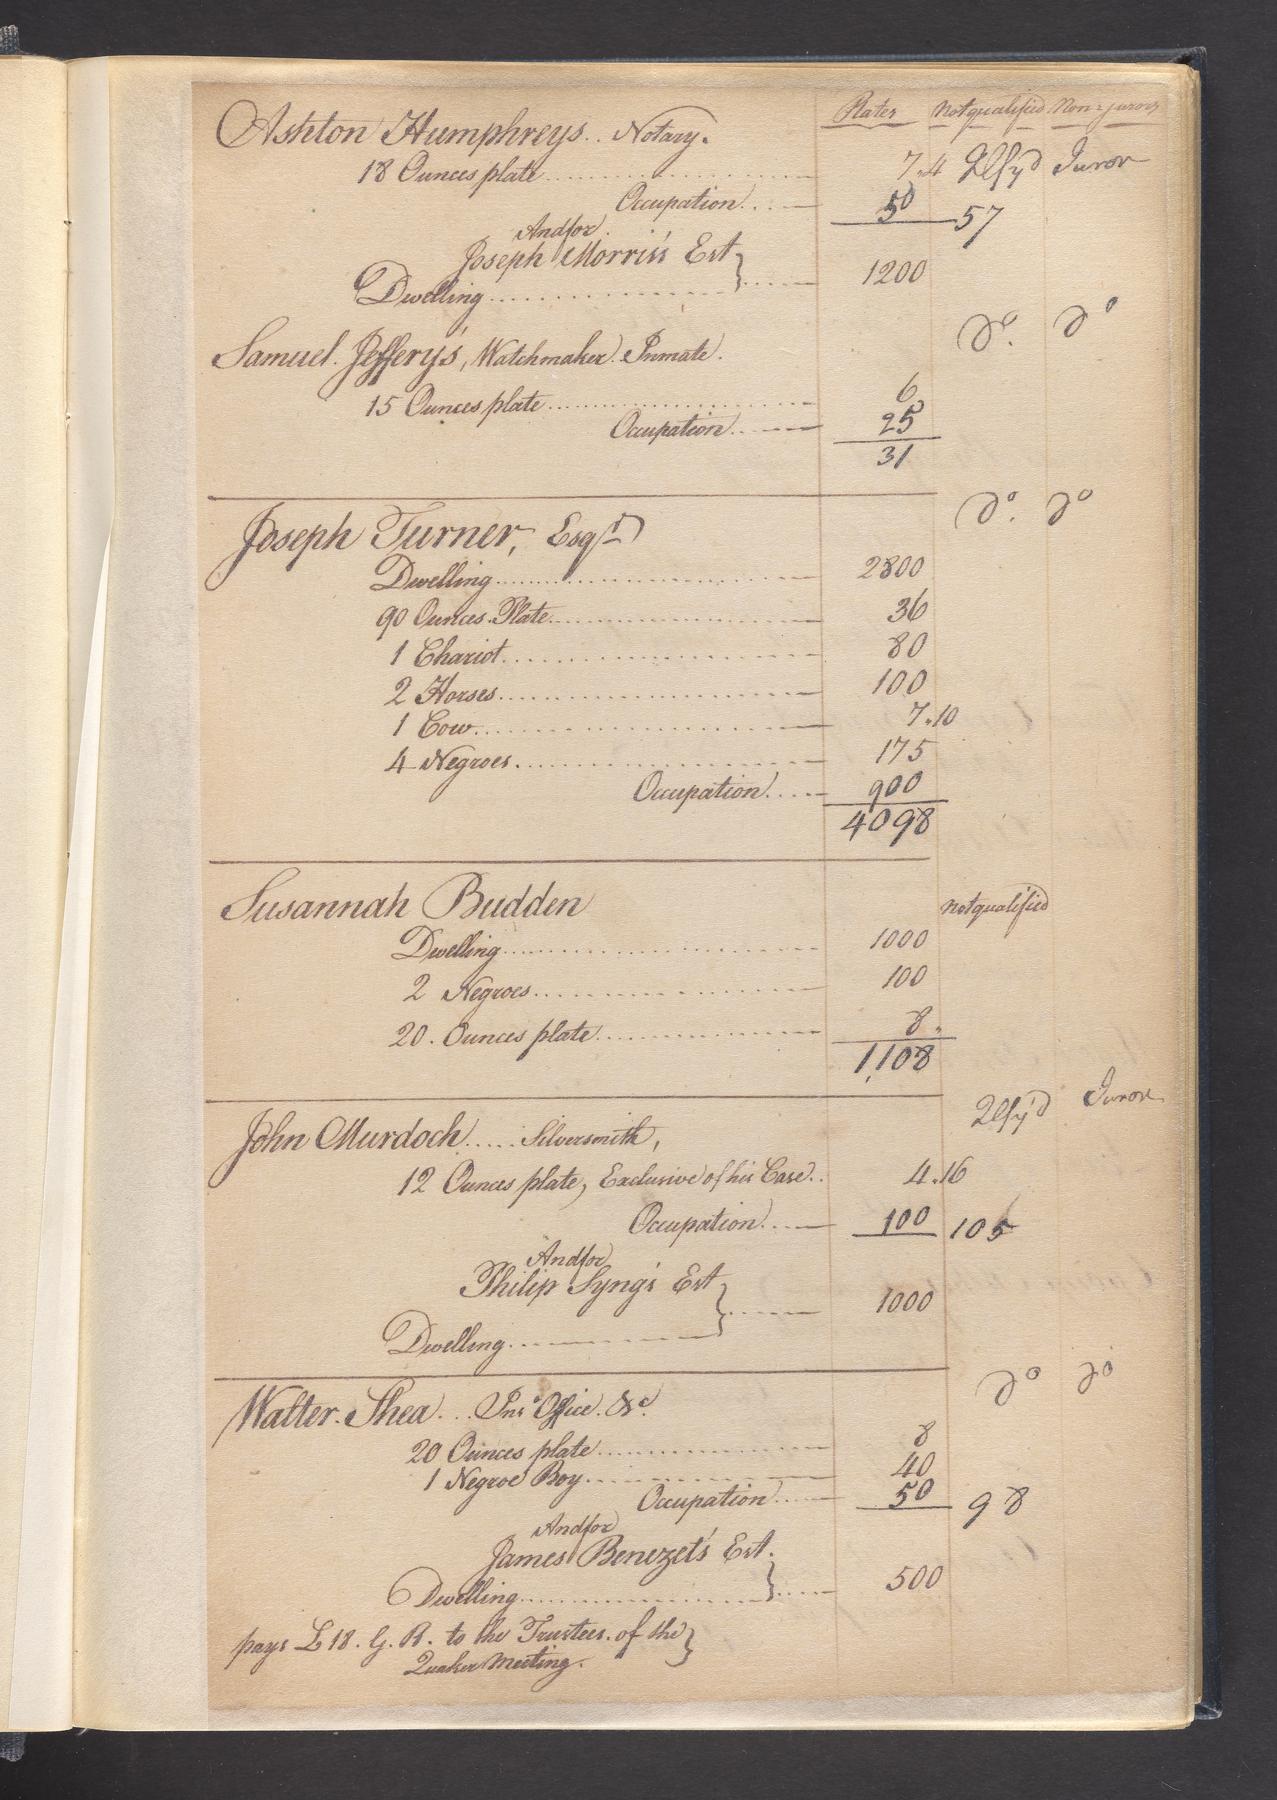 Rates Notqualified Non=jurors
Ashton Humphreys.. Notary.
18 Ounces plate 7.4 Qlfy'd Juror
Occupation 50 57
And for
Joseph Morris's Est
Dwelling 1200
Samuel Jeffery's, Watchmaker. Inmate. Do. Do
15 Ounces plate 6
Occupation 25
31
Joseph Turner, Esqr Do. Do
Dwelling 2800
90 Ounces Plate 36
1 Chariot 80
2 Horses 100
1 Cow 7.10
4 Negroes 175
Occupation 900
4098
Susannah Budden Notqualified
Dwelling 1000
2 Negroes 100
20. Ounces plate 8.
1,108
John Murdoch..... Silversmith, Qlfy'd Juror
12 Ounces plate, Exclusive of his Case.. 4.16
Occupation 100 105
And for
Philip Syng's Est
Dwelling 1000
Walter. Shea... Inse Office. &c. Do Do
20 Ounces plate 8
1 Negroe Boy 40
Occupation 50 98
And for
James Benezet's Est.
Dwelling 500
pays £18. G. R. to the Trustees. of the
Quaker Meeting.